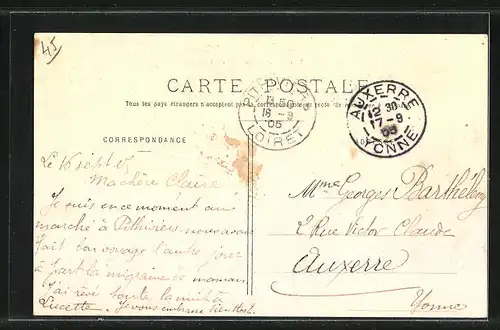 45
CARTE POSTALE
Tous les pays étrangers n'acceptent pas la correspondance
CORRESPONDANCE
PITHIVIERS
50
16 -9
05
LOIRET
AUXERRE
12 30
17-9
05
YONNE
Le 16 sept 05
Ma chère Claire
Je suis en ce moment au
marché à Pithiviers nous avons
fait bon voyage l'autre jour
à part la migraine à maman
J'ai rêvé toute la nuit à
Lucette. Je vous embrasse bien fort.
Mme Georges Barthélemy
2 Rue Victor Claude
Auxerre
Yonne